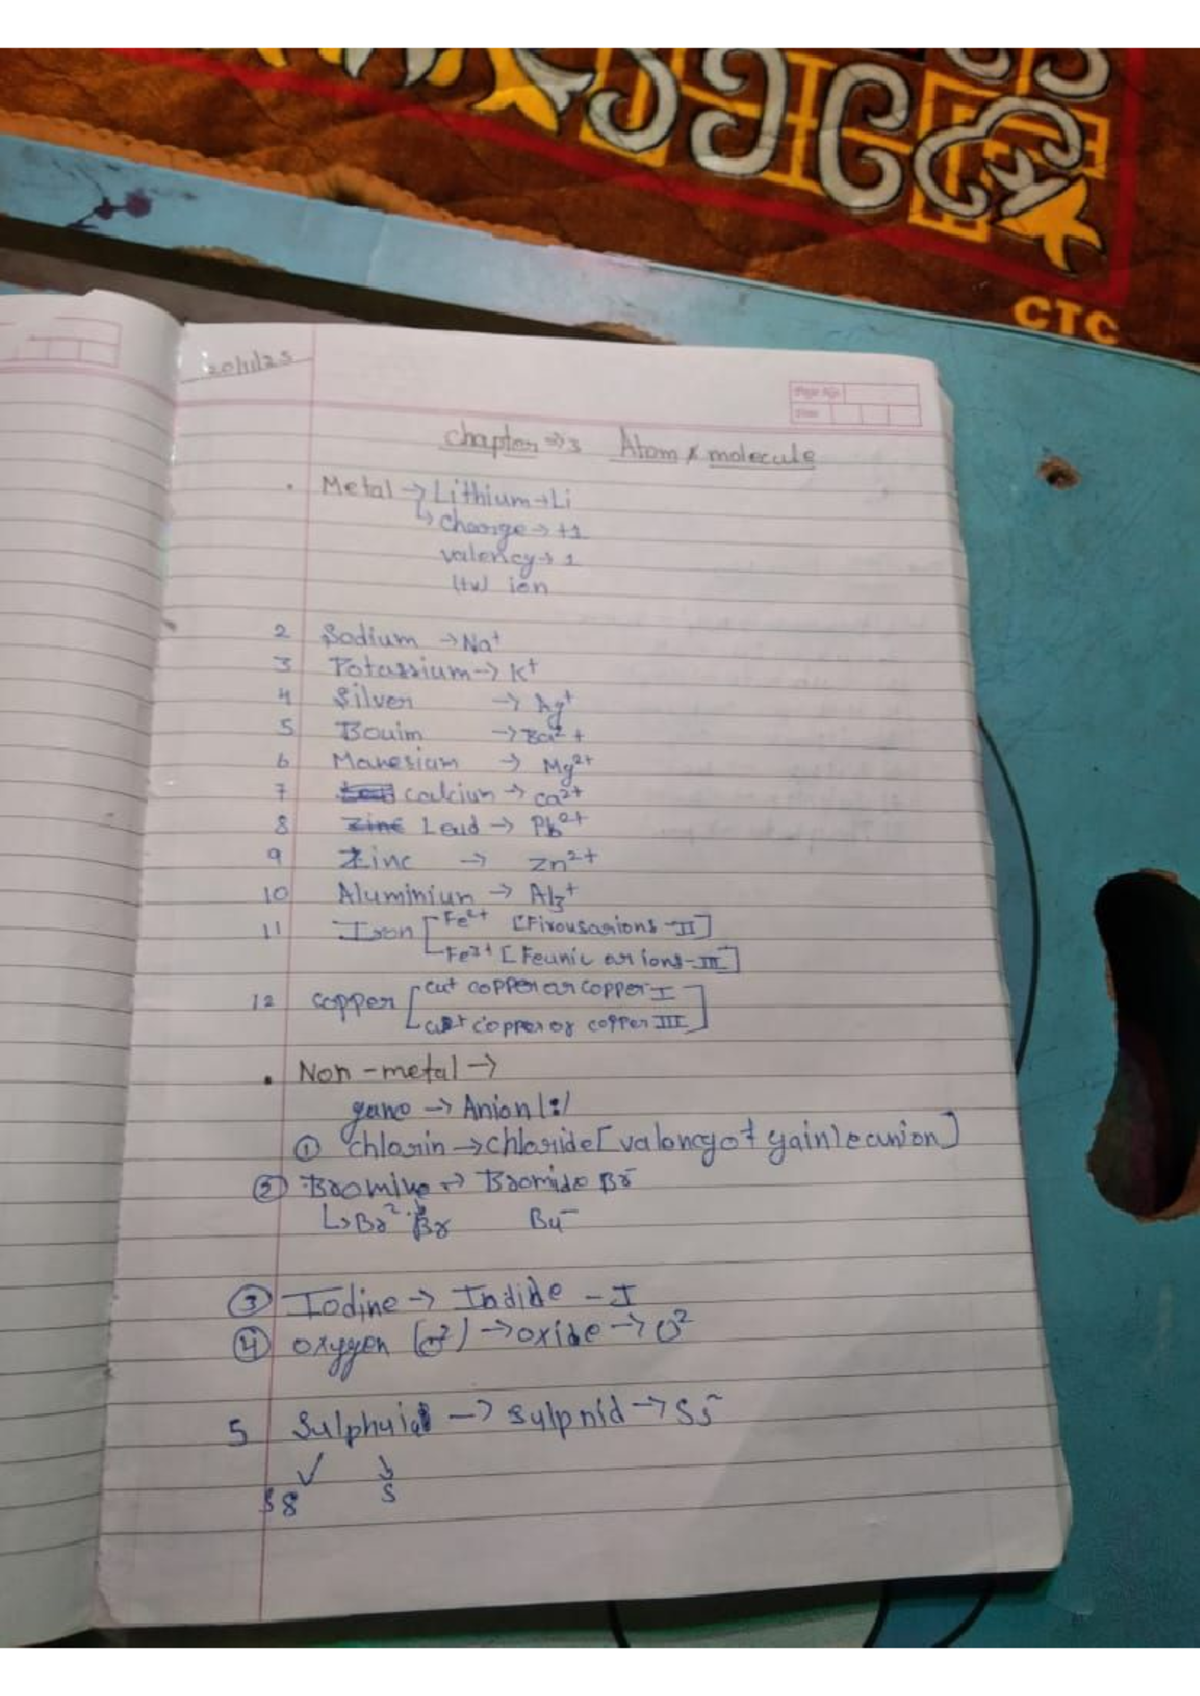 CTC
Page No.
Date
20/1/25
Chapter ⇒ 3 Atom & molecule
. Metal → Lithium → Li
↳ Charge → +1
valency → 1
ion
2 Sodium → Na⁺
3 Potassium → K⁺
4 Silver → Ag⁺
5 Bouim → Ba²⁺
6 Manesium → Mg²⁺
7 calcium → ca²⁺
8 Zinc Lead → Pb²⁺
9 Zinc → Zn²⁺
10 Aluminiun → Al3⁺
11 Iron [Fe²⁺ [Firousarions-II]
Fe³⁺ [Feunic or ions-III]
12 copper [cu⁺ copper or copper I
copper or copper III]
• Non-metal →
→ Anion
① chlorin → chloride [valency of gain]
② Bromine → Bromide Br⁻
↳ Br² Br
③ Iodine → Indide - I
④ oxygen (O²) → oxide → O²
5 → sulpnid → S
S8 S